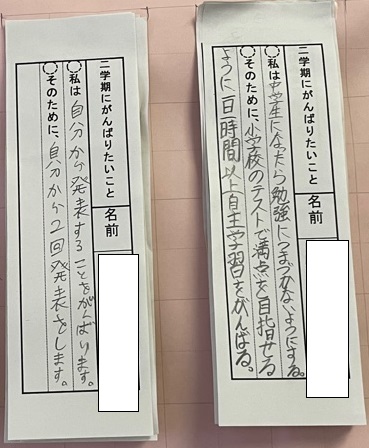 二学期にがんばりたいこと
名前
私は中学生になったら勉強につまづかないようにする。
そのために、小学校のテストで満点を目指せる
ように一日一時間以上自主学習をがんばる。
二学期にがんばりたいこと
名前
私は自分から発表することをがんばります。
そのために、自分から2回発表をします。